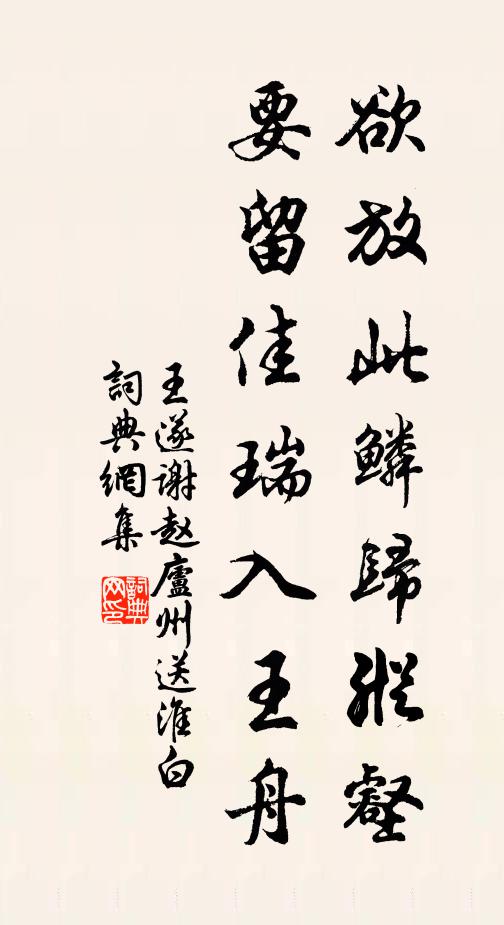 欲放此鳞歸縱壑
要留佳瑞入王舟
王遂谢赵廬州送淮白
詞典網集
詞典網印